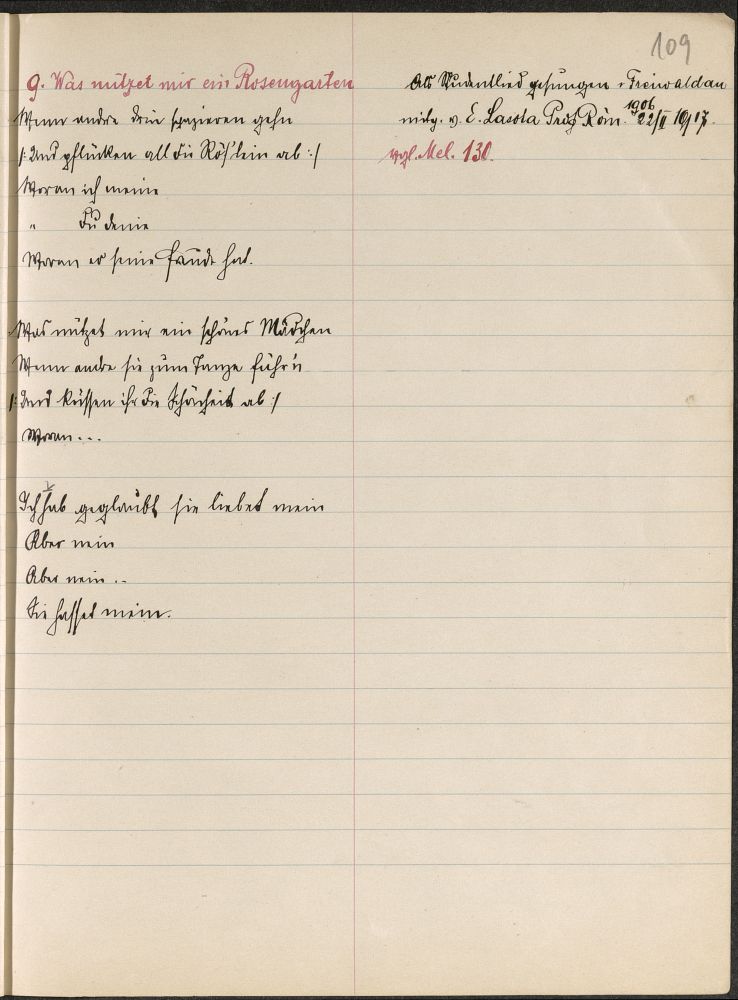 109
9. Was nützet mir ein Rosengarten
Wenn andre drin spazieren gehn
/: Und pflücken all die Röslein ab :/
Woran ich meine
" Du deine
Woran er seine Freude hat.
Was nützet mir ein schönes Mädchen
Wenn andre sie zum Tanze führ'n
/: Und küssen ihr die Schönheit ab :/
Woran...
Ich hab geglaubt sie liebet mein
Aber nein
Aber nein ..
Sie hasset mein.
Als Studentlied gesungen Freiwaldau
mitg. v. E. Lasota 1906 22/II 1917.
vgl. Mel. 130.